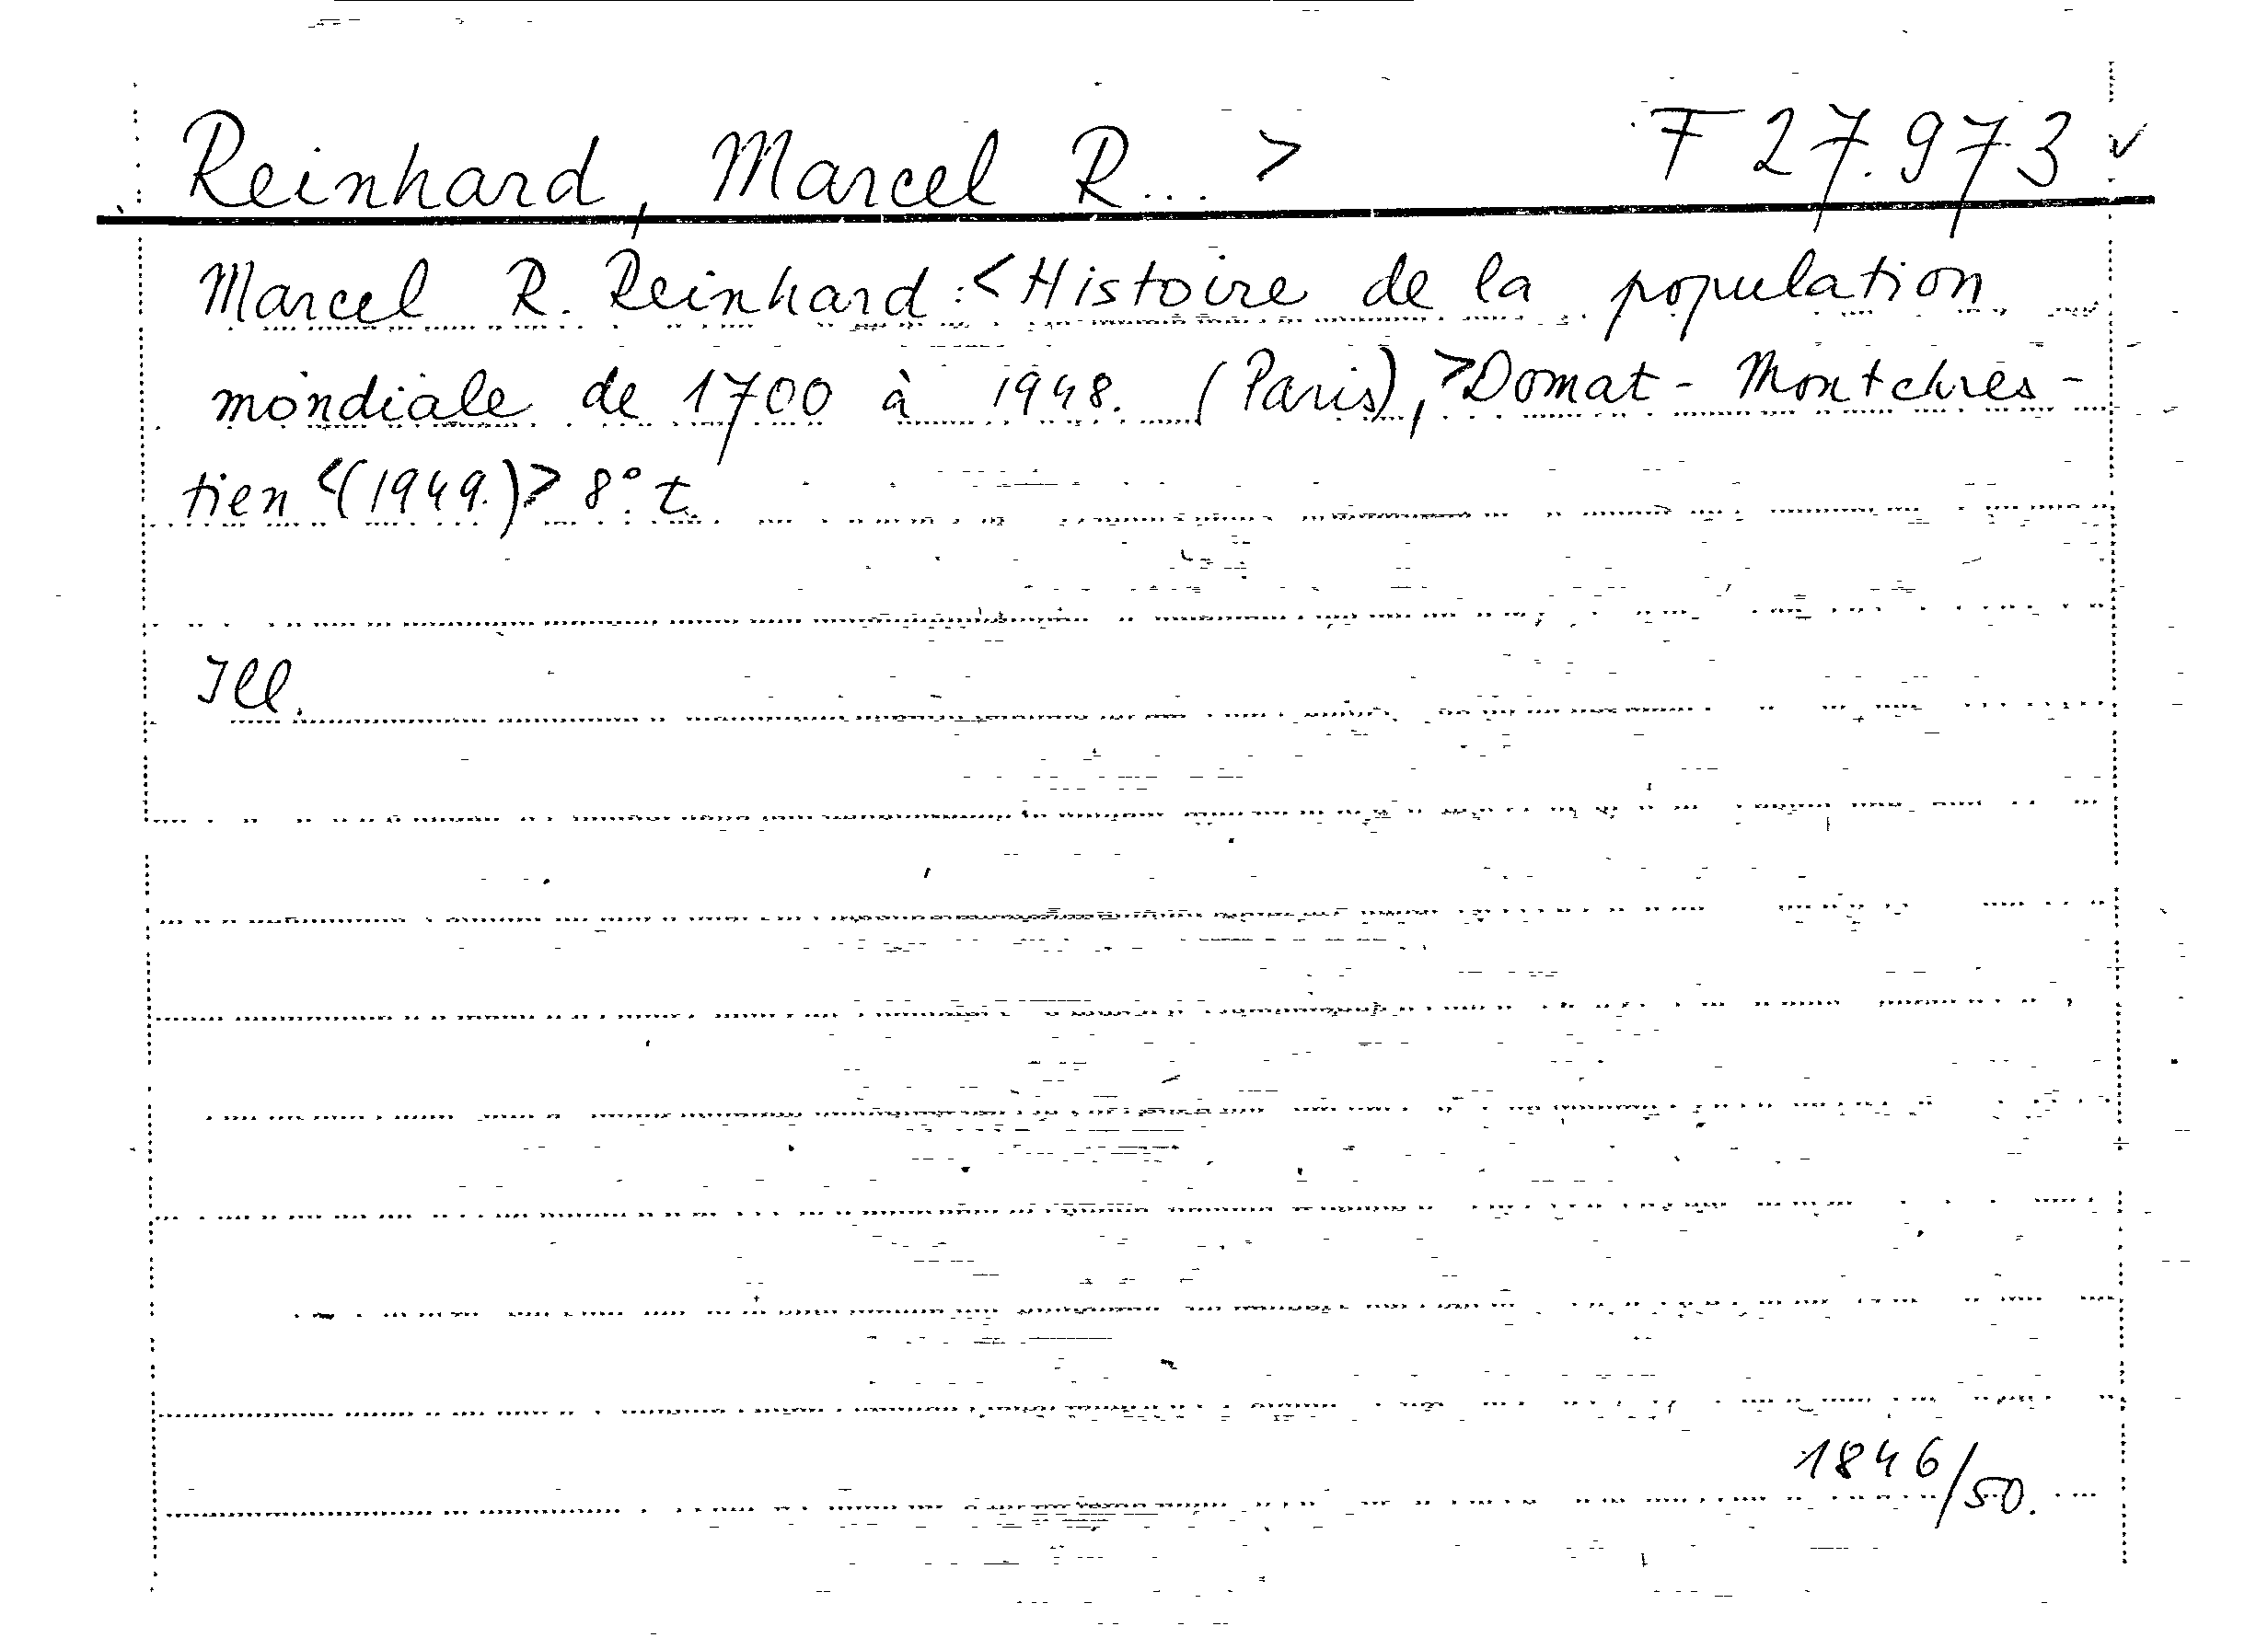 Reinhard, Marcel R... > F 27.973 ✓
Marcel R. Reinhard: < Histoire de la population
mondiale de 1700 à 1948. (Paris), > Domat - Montchres-
tien < (1949.) > 8° t.
Ill.
1846/50.